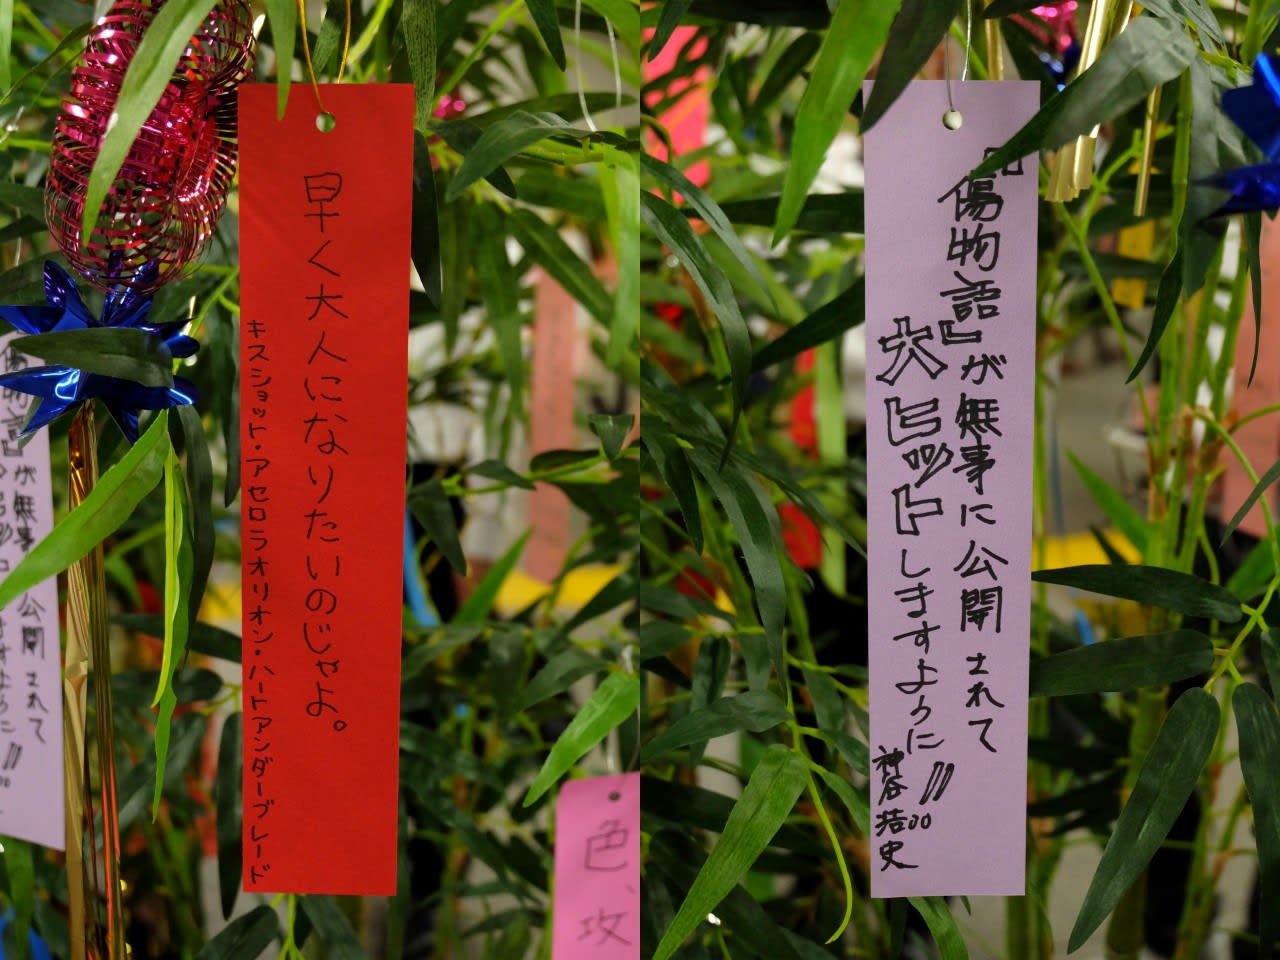 早く大人になりたいのじゃよ。
キスショット・アセロラオリオン・ハートアンダーブレード
『傷物語』が無事に公開されて
大ヒットしますように!!
神谷浩史
物語』が無事に公開されて
ますように!!
色、
攻